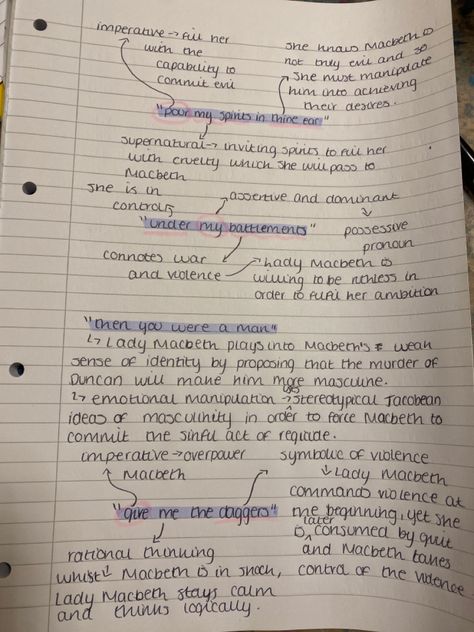 imperative → fill her
with the
capability to
commit evil
she knows Macbeth is
not truly evil and so
she must manipulate
him into achieving
their desires.
"pour my spirits in thine ear"
supernatural → inviting spirits to fill her
with cruelty which she will pass to
Macbeth
she is in
control
assertive and dominant
"under my battlements"
possessive
pronoun
connotes war
and violence
Lady Macbeth is
willing to be ruthless in
order to fulfil her ambition
"then you were a man"
↳ Lady Macbeth plays into Macbeth's weak
sense of identity by proposing that the murder of
Duncan will make him more masculine.
↳ emotional manipulation → uses stereotypical Jacobean
ideas of masculinity in order to force Macbeth to
commit the sinful act of regicide.
imperative → overpower
Macbeth
symbolic of violence
↓ Lady Macbeth
commands violence at
the beginning, yet she
is later consumed by guilt
and Macbeth takes
control of the violence
"give me the daggers"
rational thinking
whilst Macbeth is in shock,
Lady Macbeth stays calm
and thinks logically.